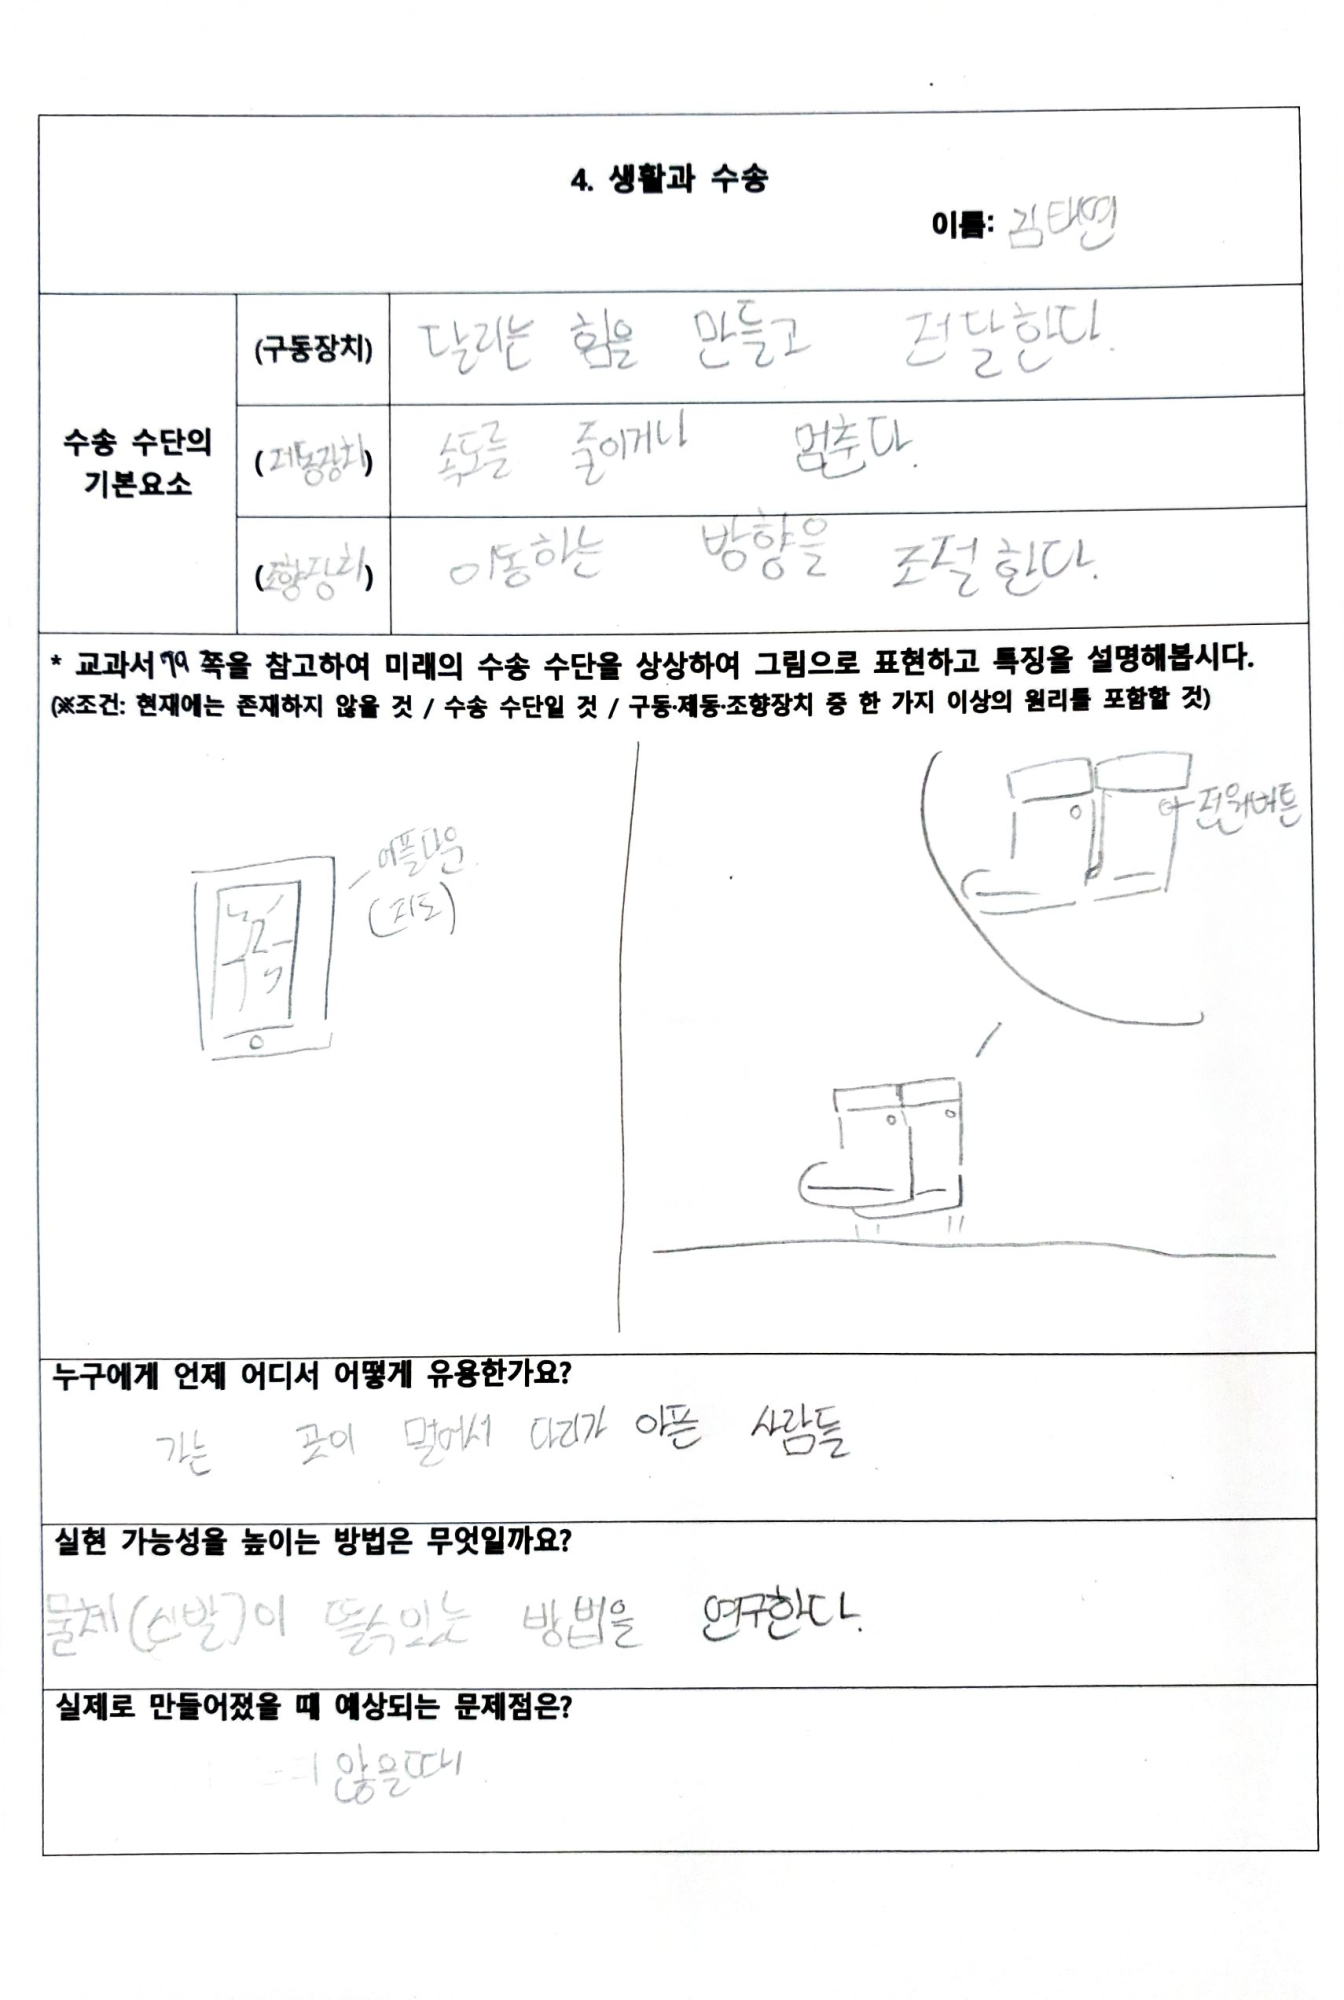 4. 생활과 수송
이름: 김태연
수송 수단의
기본요소
(구동장치) 달리는 힘을 만들고 전달한다.
(제동장치) 속도를 줄이거나 멈춘다.
(조향장치) 이동하는 방향을 조절한다.
* 교과서 79 쪽을 참고하여 미래의 수송 수단을 상상하여 그림으로 표현하고 특징을 설명해봅시다.
(※조건: 현재에는 존재하지 않을 것 / 수송 수단일 것 / 구동·제동·조향장치 중 한 가지 이상의 원리를 포함할 것)
전원버튼
어플다운
(지도)
누구에게 언제 어디서 어떻게 유용한가요?
가는 곳이 멀어서 다리가 아픈 사람들
실현 가능성을 높이는 방법은 무엇일까요?
물체(신발)이 뜰수있는 방법을 연구한다.
실제로 만들어졌을 때 예상되는 문제점은?
않을때